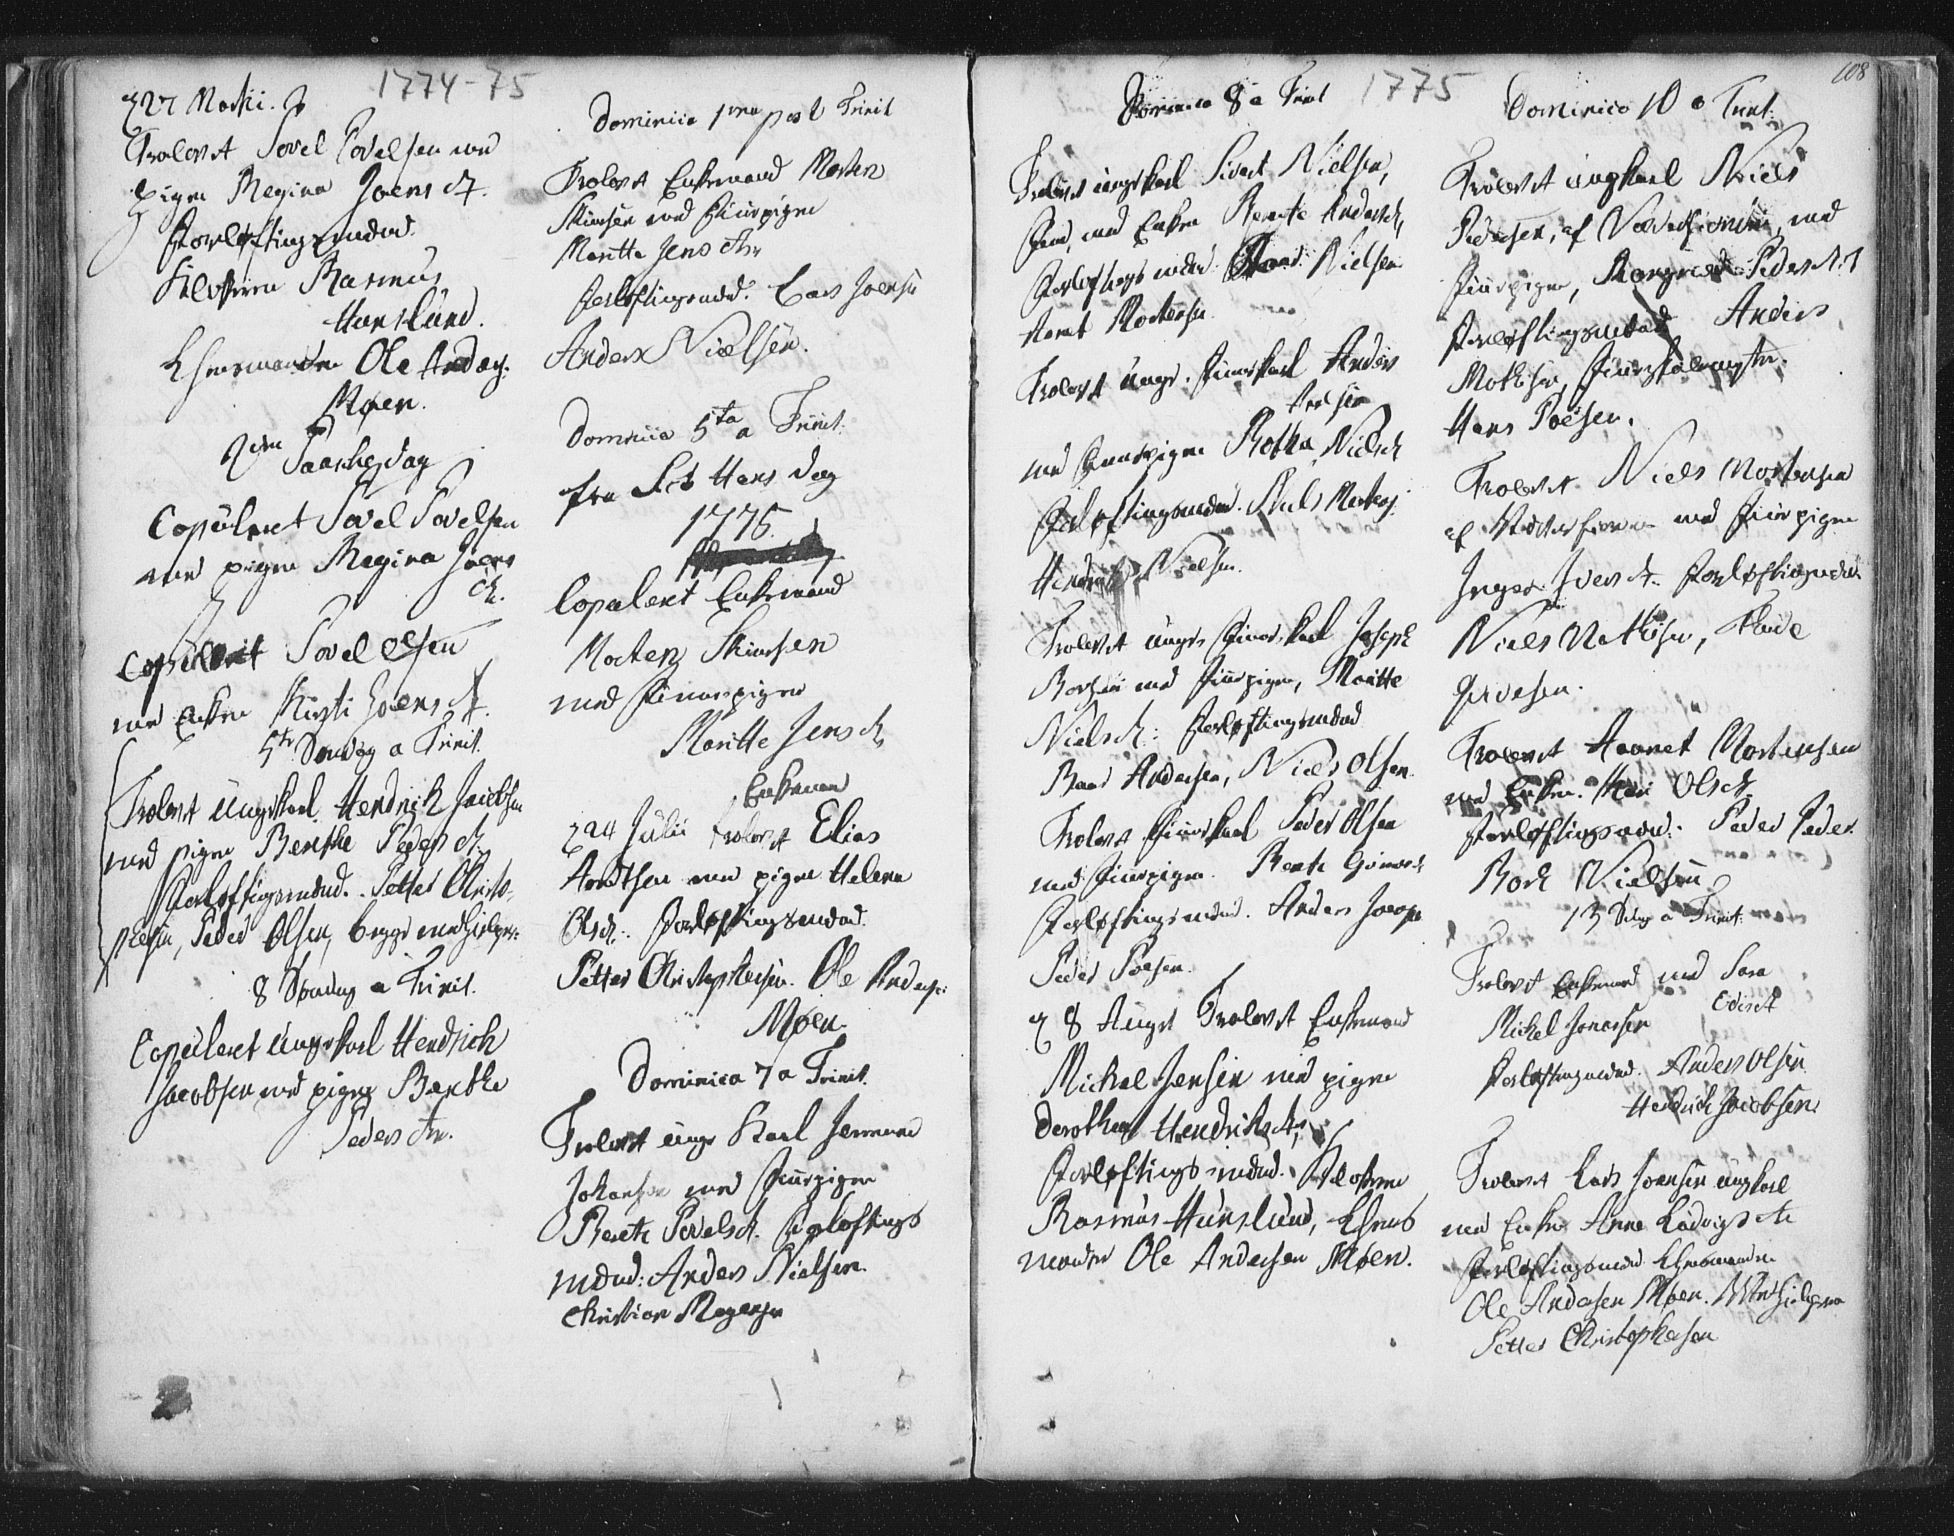 1774-75
27 Martii.
Trolovet Povel Povelsen med
pigen Regina Joensdt.
Forløftingsmænd.
Klokkeren Rasmus
Hunslund.
Lhensmanden Ole Anders:
Møen.
2den Paaskedag
Copuleret Povel Povelsen
med pigen Regina Joens
dt.
Copuleret Povel Olsen
med Enken Kirsti Joensdt.
5te Søndag a Trinit.
Trolovet Ungekarl Hendrich Jacobsen
med pigen Benthe Pedersdt.
Forløftigsmænd. Petter Christo-
phersen, Peder Olsen, begge medhielper:
8 Søndag a Trinit.
Copuleret Ungekarl Hendrich
Jacobsen med pigen Benthe
Peders dtr.
Dominica 1ma post Trinit
Trolovet Enkemand Morten
Skimsen med Finnepigen
Maritte Jens dtr
Forløftingsmænd: Lars Joensen
Anders Nielsen.
Dominica 5ta a Trinit.
fra Sct Hans dag
1775.
Copuleret Enkemand
Morten Skimsen
med Finnepigen
Maritte Jensdt.
Enkemand
24 Julii trolovet Elias
Arntsen med pigen Helena
Olsdt. Forløftingsmænd.
Petter Christophersen. Ole Anders:
Møen.
Dominica 7 a Trinit.
Trolovet unge Karl Jermund
Johansen med Finnepigen
Berit Povelsdt. Forløftings
mænd: Anders Nielsen.
Christian Mogensen
1775
108
Dominica 8 a Trinit
Trolovet ungekarl Sivert Nielsen,
med Enken Berete Andersdt,
Forløftings mænd: Nielsen
Arent Mortensen
Trolovet unge Finnekarl Anders
med Finnepigen Nielsdt
Forløftingsmænd. Niels Mortens:
Hendrich Nielsen.
Trolovet unge Finnekarl Joseph
med Finnepigen, Maritte
Nielsdt: Forløftingsmænd
Baar Andersen, Niels Olsen.
Trolovet Finnekarl Peder Olsen
med Finnepigen Berete
Forløftingsmænd. Anders
Peder Poelsen.
8 August Trolovet Enkemand
Michel Jensen med pigen
Dorothea Hendrichsdtr
Forløftings mænd. Klokkeren
Rasmus Hunslund, Lhens
manden Ole Andersen Møen.
Dominica 10 a Trinit.
Trolovet ungkarl Niels
Pedersen, af med
Finnepigen, Margrete Pedersdt
Forløftingsmænd Anders
Mathisen, Finneskolemester.
Hans Poelsen.
Trolovet Niels Mortensen
af med Finnepigen
Inger Ivers dt. Forløftingsmænd
Niels Mathisen,
Iversen.
Trolovet Arent Mortensen
med Enken Olsdt
Forløftingsmænd: Peder Peder
Nielsen
13 Søndag a Trinit.
Trolovet Enkemand med Sara
Michel Jonassen
Forløftingsmænd. Anders Olsen
Hendrich Jacobsen.
Trolovet Lars Joensen ungkarl
med Enken Anne Ludvigsdtr
Forløftingsmænd Lhensmanden
Ole Andersen Møen. Medhielperen
Petter Christophersen